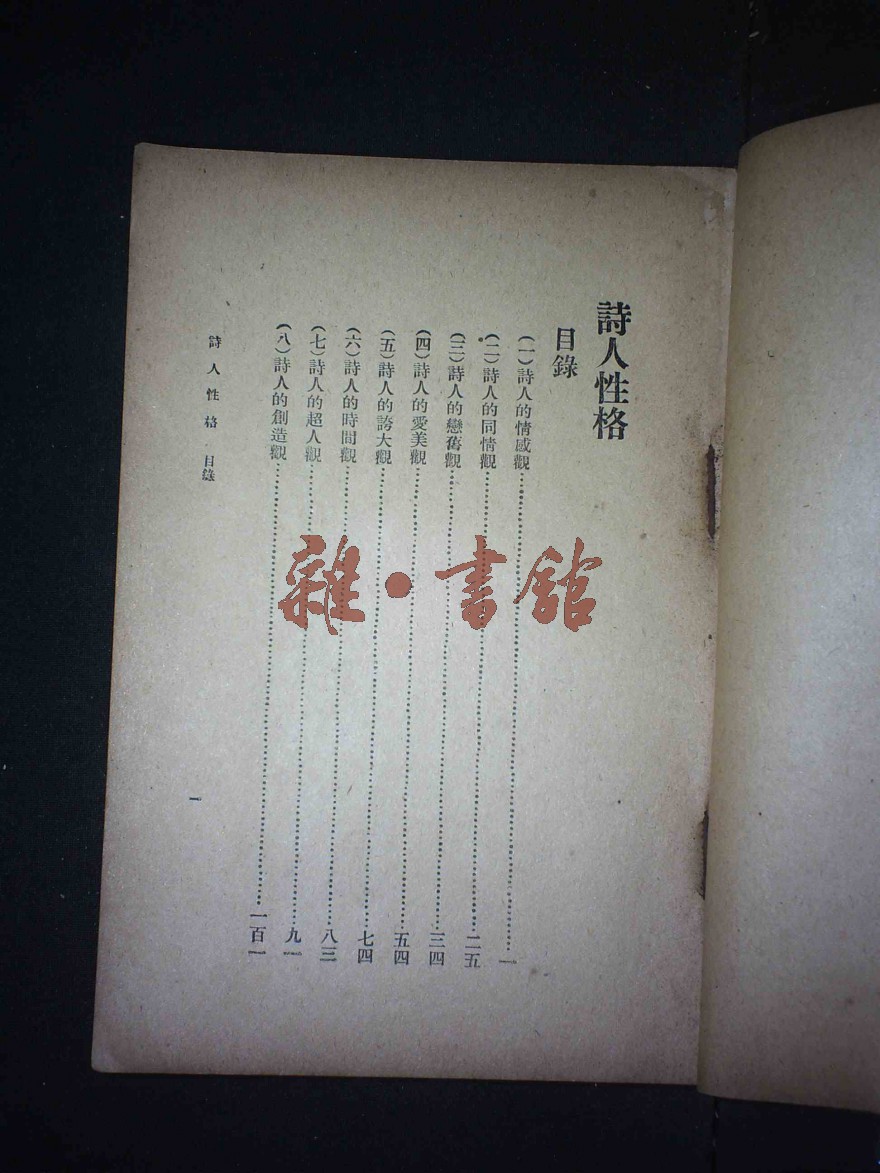 詩人性格
目錄
(一)詩人的情感觀……一
(二)詩人的同情觀……二五
(三)詩人的戀舊觀……三四
(四)詩人的愛美觀……五四
(五)詩人的誇大觀……七四
(六)詩人的時間觀……八三
(七)詩人的超人觀……九一
(八)詩人的創造觀……一百一
詩人性格 目錄
一
雜·書館